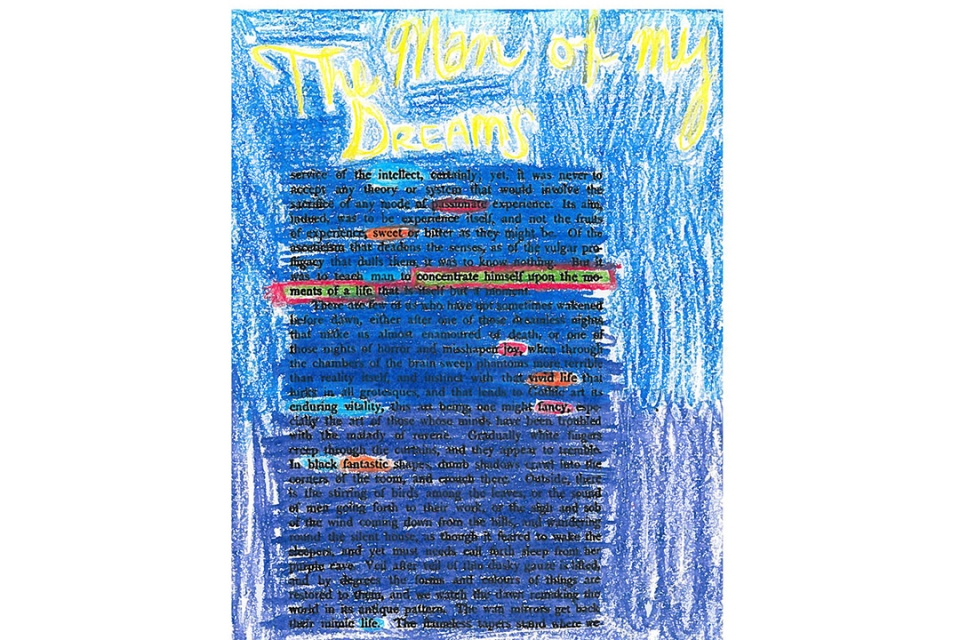 The Man of my
Dreams
service of the intellect, certainly; yet, it was never to
accept any theory or system that would involve the
sacrifice of any mode of passionate experience. Its aim,
indeed, was to be experience itself, and not the fruits
of experience, sweet or bitter as they might be. Of the
asceticism that deadens the senses, as of the vulgar pro-
fligacy that dulls them, it was to know nothing. But it
was to teach man to concentrate himself upon the mo-
ments of a life that is itself but a moment.
There are few of us who have not sometimes wakened
before dawn, either after one of those dreamless nights
that make us almost enamoured of death, or one of
those nights of horror and misshapen joy, when through
the chambers of the brain sweep phantoms more terrible
than reality itself, and instinct with that vivid life that
lurks in all grotesques, and that lends to Gothic art its
enduring vitality, this art being, one might fancy, espe-
cially the art of those whose minds have been troubled
with the malady of reverie. Gradually white fingers
creep through the curtains, and they appear to tremble.
In black fantastic shapes, dumb shadows crawl into the
corners of the room, and crouch there. Outside, there
is the stirring of birds among the leaves, or the sound
of men going forth to their work, or the sigh and sob
of the wind coming down from the hills, and wandering
round the silent house, as though it feared to wake the
sleepers, and yet must needs call forth sleep from her
purple cave. Veil after veil of thin dusky gauze is lifted,
and by degrees the forms and colours of things are
restored to them, and we watch the dawn remaking the
world in its antique pattern. The wan mirrors get back
their mimic life. The flameless tapers stand where we